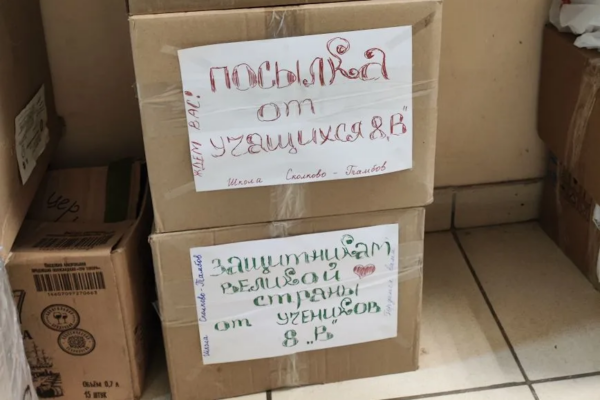 ПОСЫЛКА
от
учащихся 8 „В"
ЖДЕМ ВАС!
Школа Сколково - Тамбов
ЗАЩИТНИКАМ
ВЕЛИКОЙ
страны
от УЧЕНИКОВ
8 „В"
Школа Сколково-Тамбов
Объём 0,7 л
15 штук